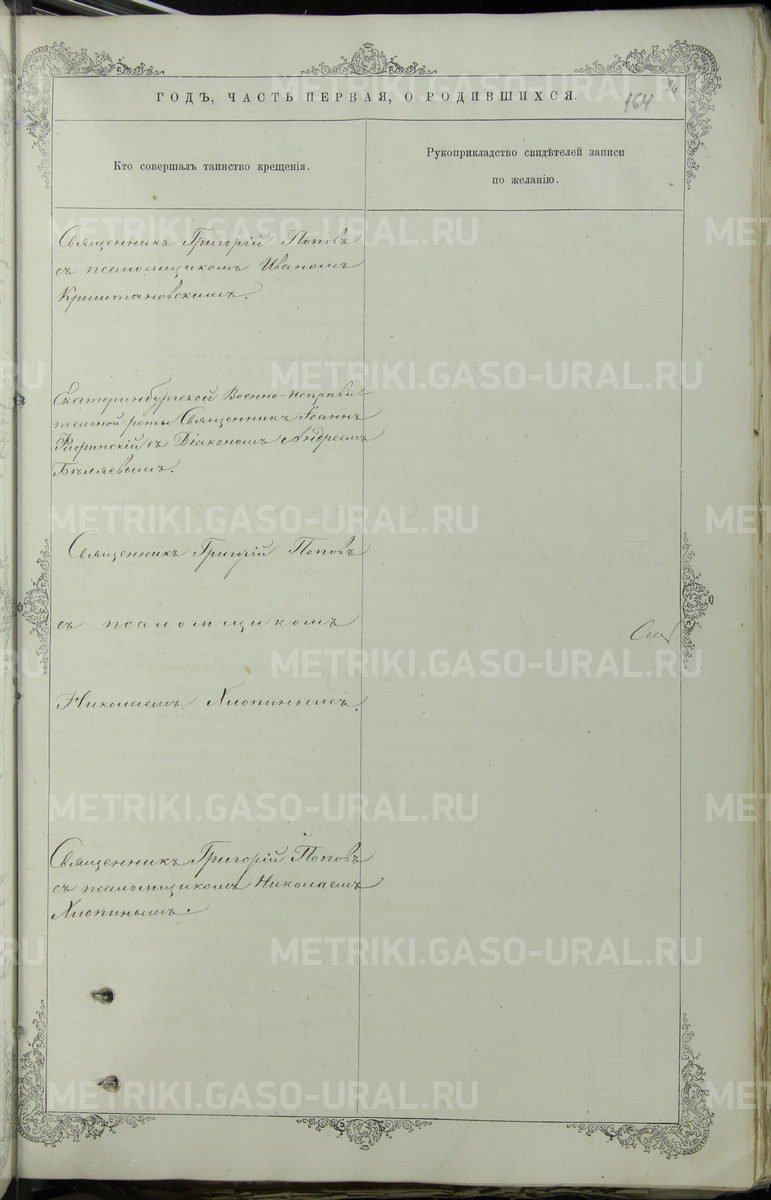 ГОДЪ, ЧАСТЬ ПЕРВАЯ, О РОДИВШИХСЯ.
164
Кто совершалъ таинство крещенія.
Рукоприкладство свидѣтелей записи
по желанію.
Священникъ Григорій Поповъ
съ псаломщикомъ Иваномъ
Криштановскимъ.
Екатеринбургской Военно-исправи-
тельной роты Священникъ Іоаннъ
Флоринскій съ Діакономъ Андреемъ
Бѣляевымъ.
Священникъ Григорій Поповъ
съ псаломщикомъ
Николаемъ Хлопинымъ.
Священникъ Григорій Поповъ
съ псаломщикомъ Николаемъ
Хлопинымъ.
METRIKI.GASO-URAL.RU